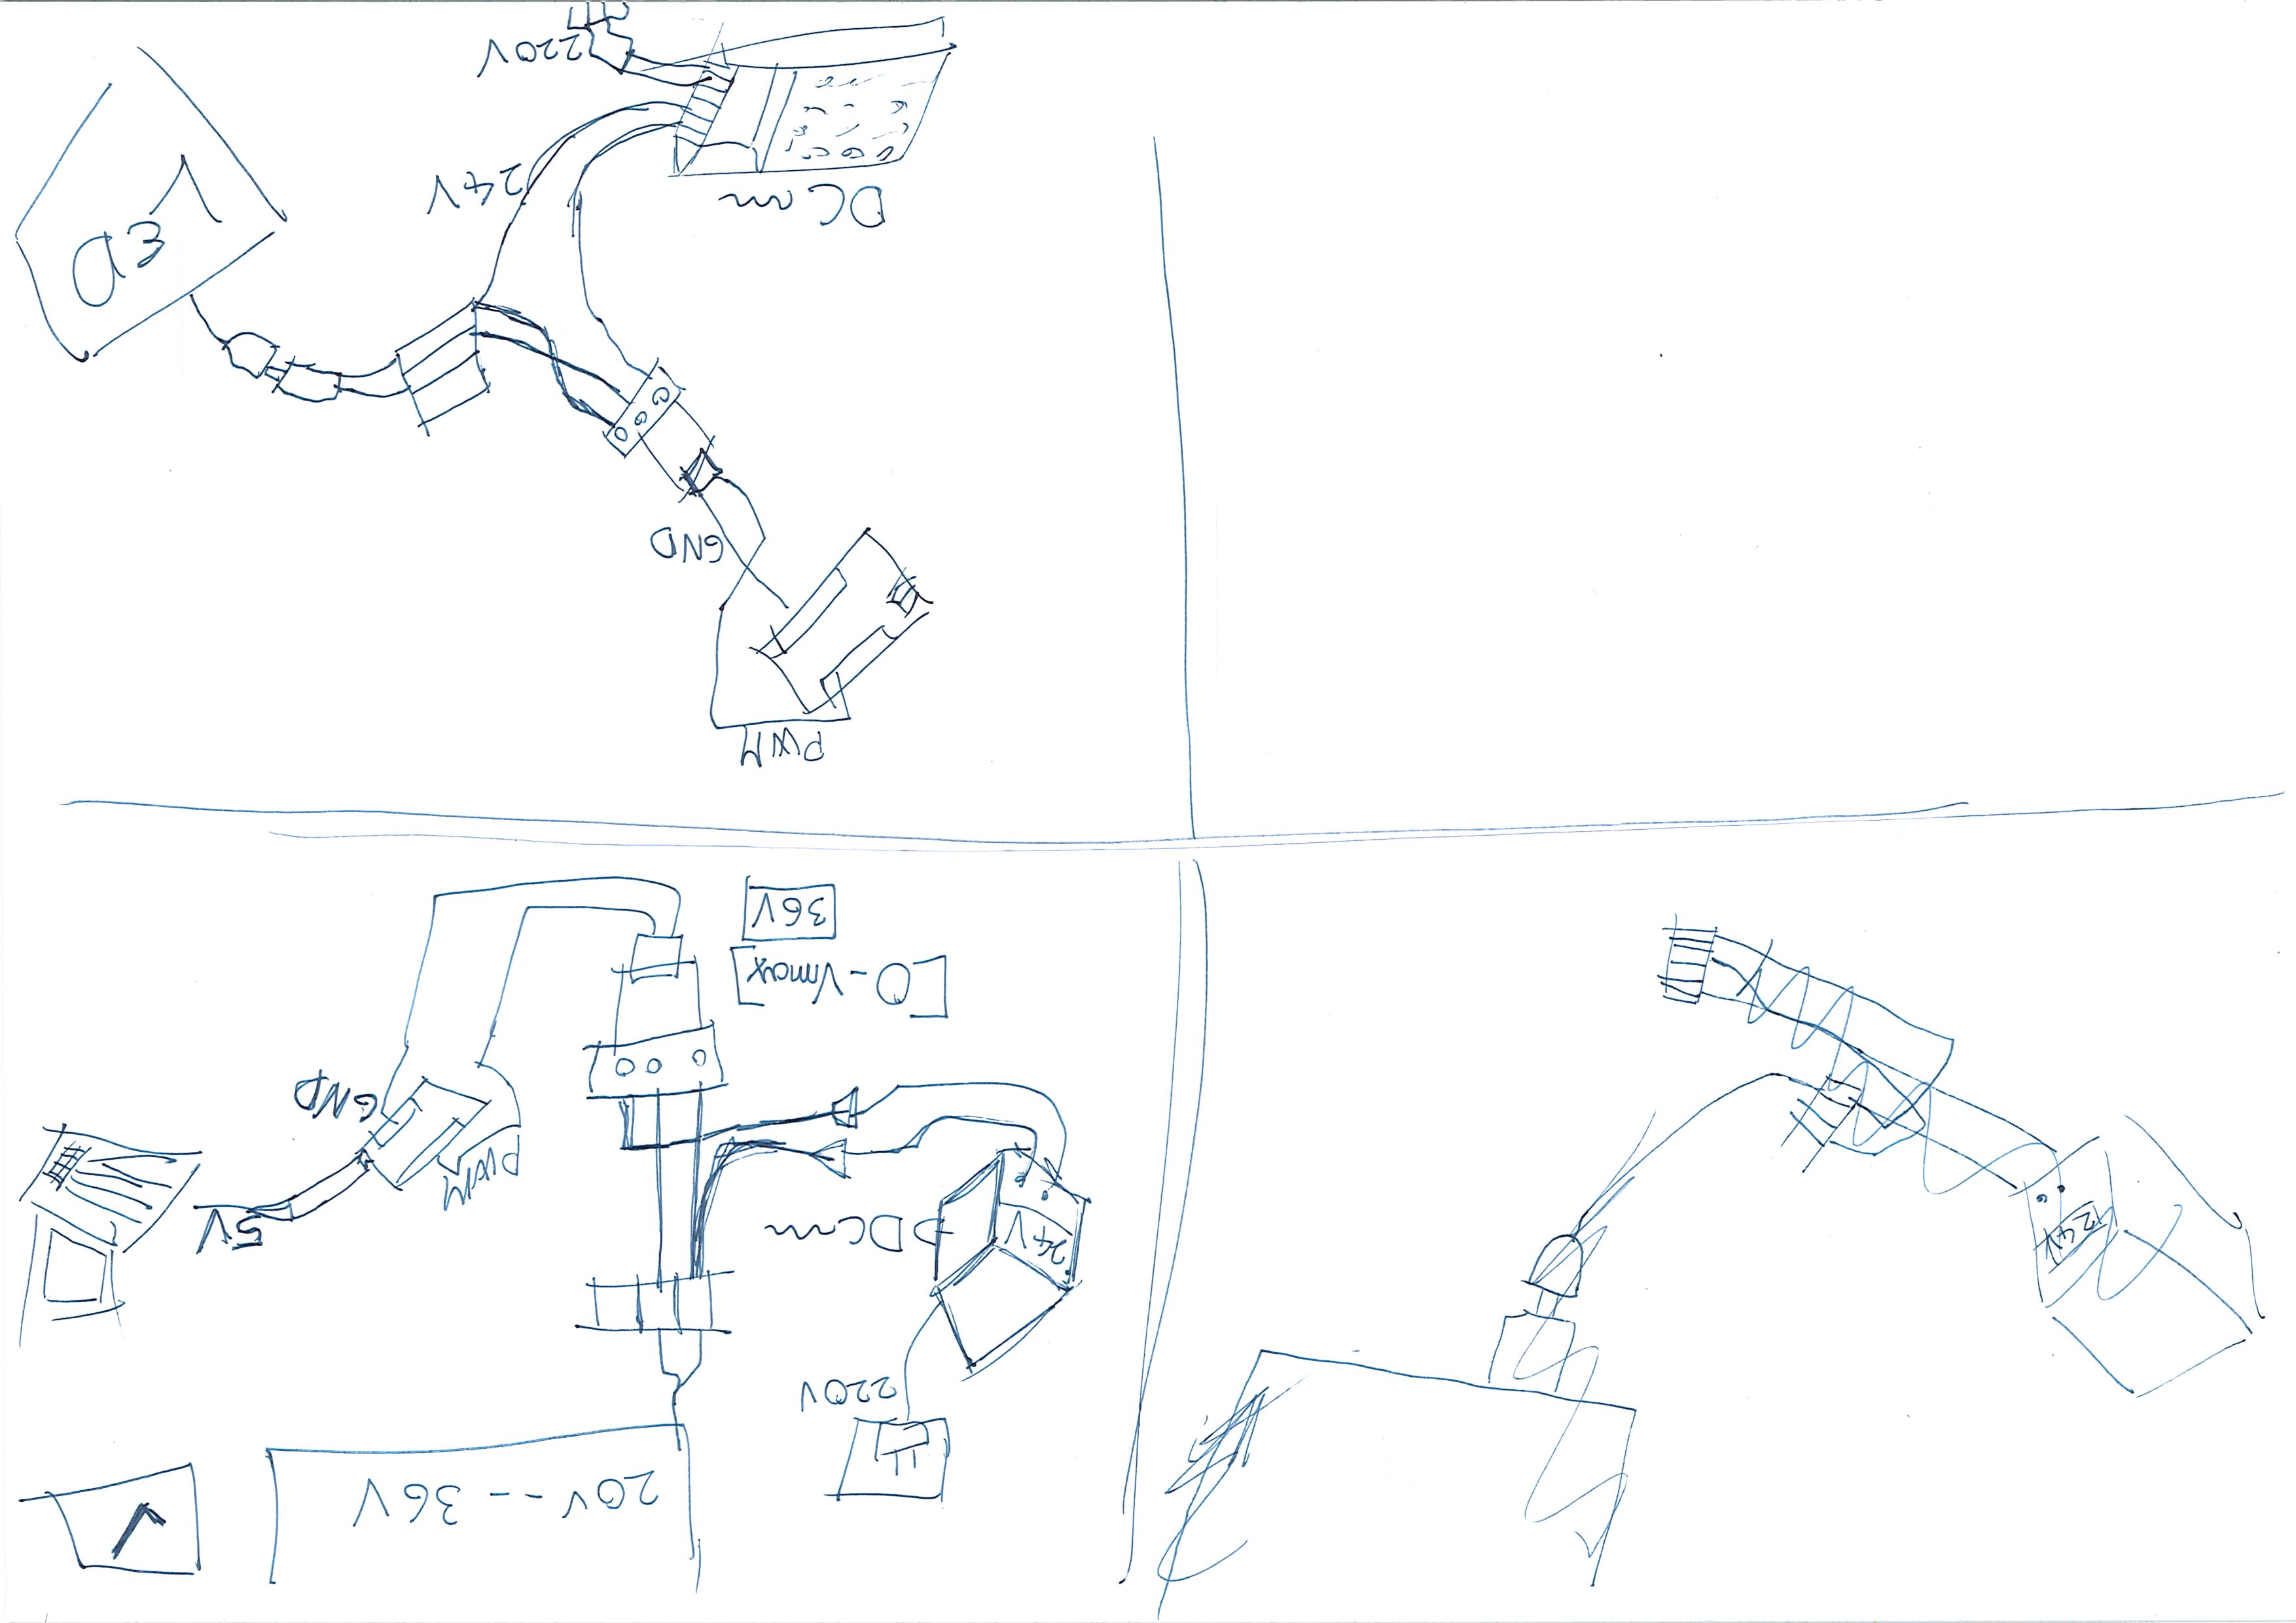 24V
20V -- 36V
220V
24V
DC
5V
PWM
GND
[0-Vmax]
36V
PWM
GND
LED
DC
24V
220V